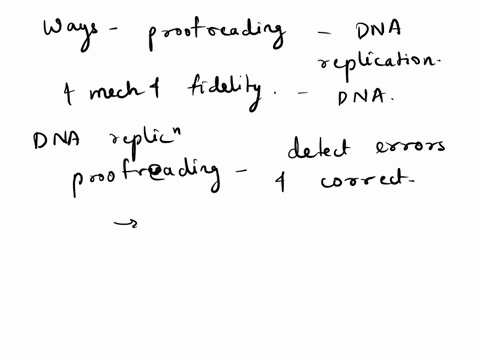 Ways - proofreading - DNA
replication.
& mech & fidelity. - DNA.
DNA replicⁿ
proofreading - detect errors
& correct.
→